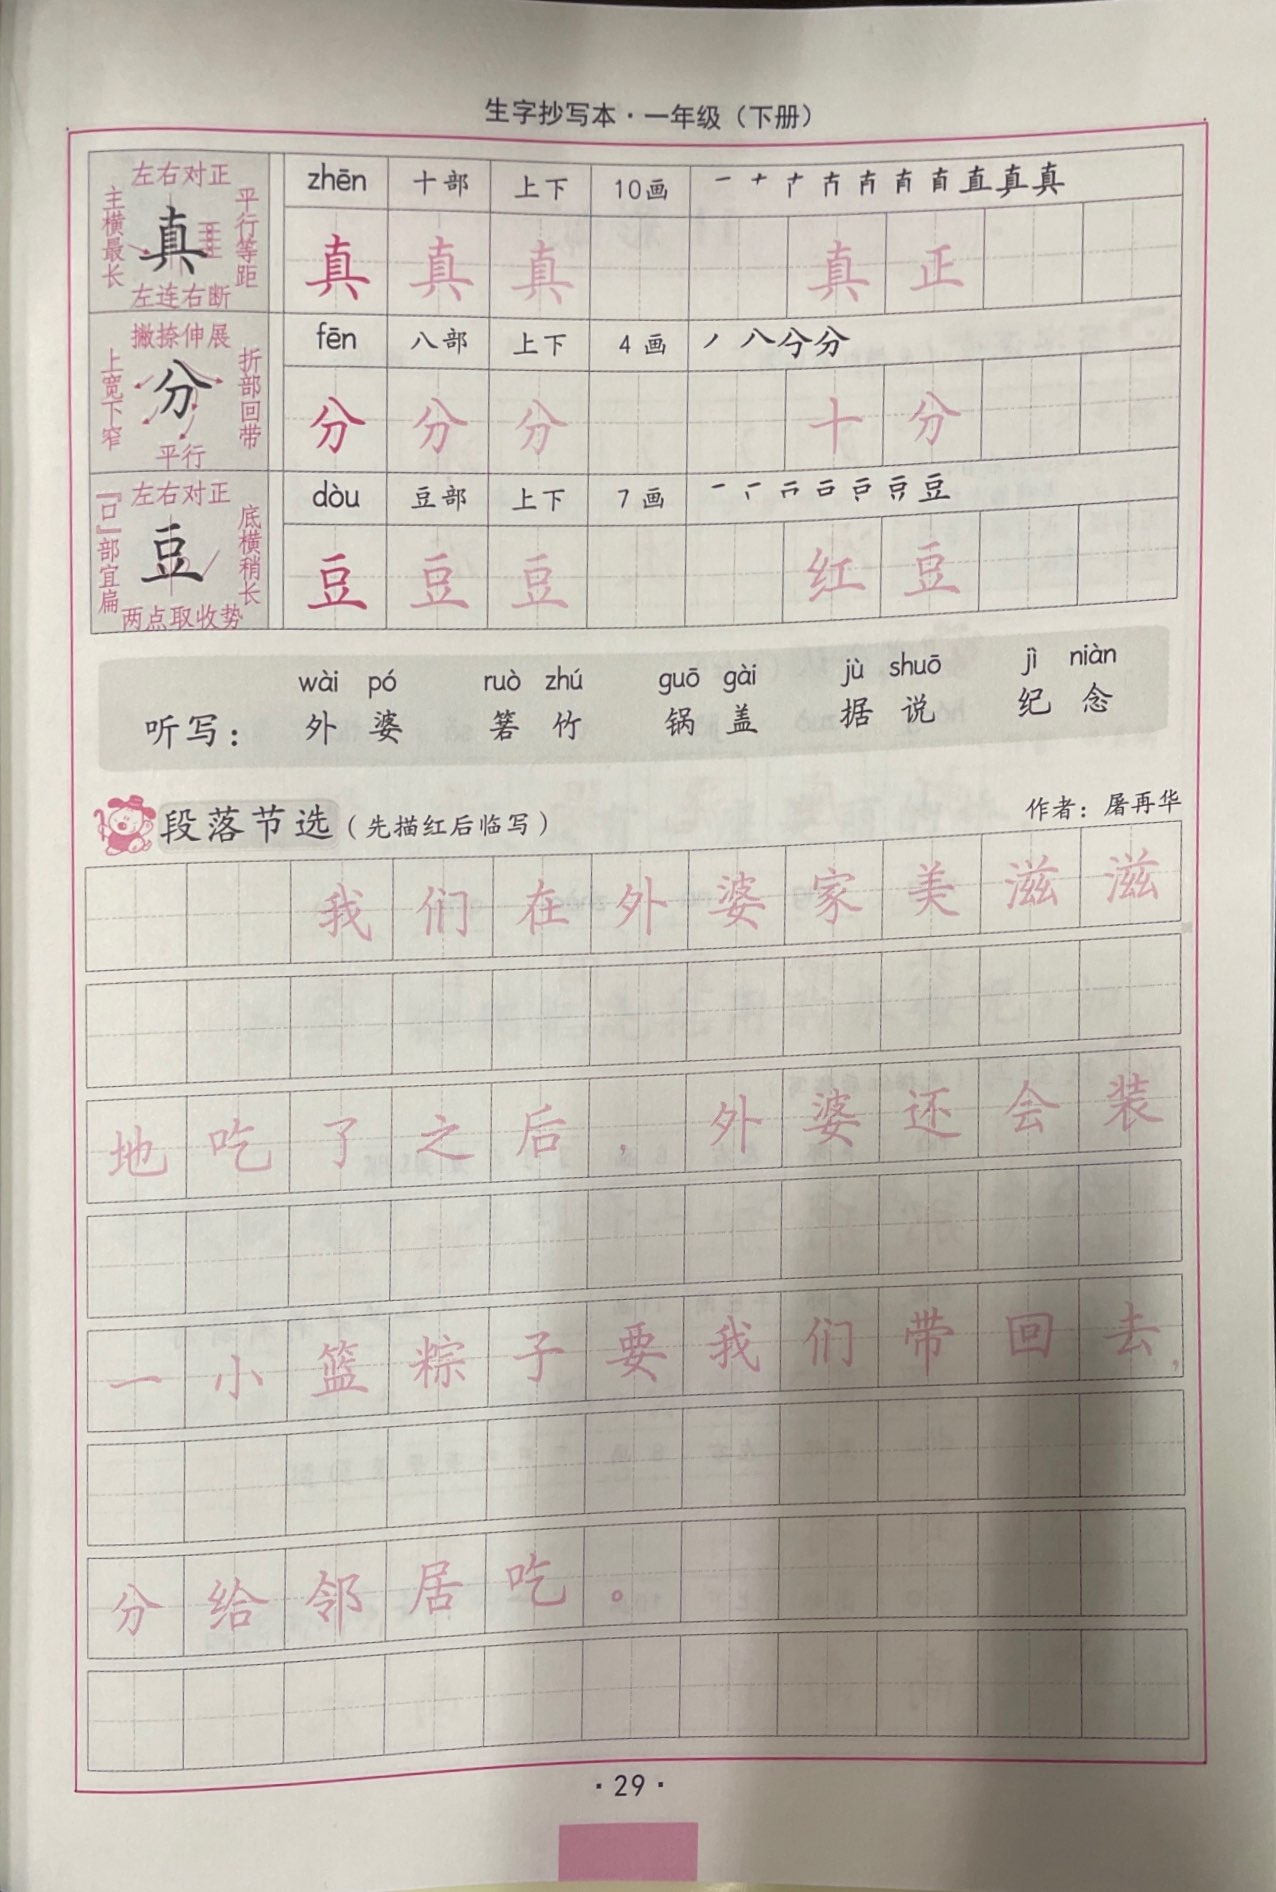 生字抄写本·一年级（下册）
左右对正
主横最长
真
平行等距
左连右断
zhēn 十部 上下 10画 一 十 𠂇 直 真 真
真 真 真 真 正
撇捺伸展
上宽下窄
分
折部回带
平行
fēn 八部 上下 4画 丿 八 分 分
分 分 分 十 分
左右对正
『口』部宜扁
豆
底横稍长
两点取收势
dòu 豆部 上下 7画 一 豆
豆 豆 豆 红 豆
wài pó ruò zhú guō gài jù shuō jì niàn
听写： 外婆 箬竹 锅盖 据说 纪念
段落节选（先描红后临写） 作者：屠再华
我们在外婆家美滋滋
地吃了之后，外婆还会装
一小篮粽子要我们带回去，
分给邻居吃。
·29·